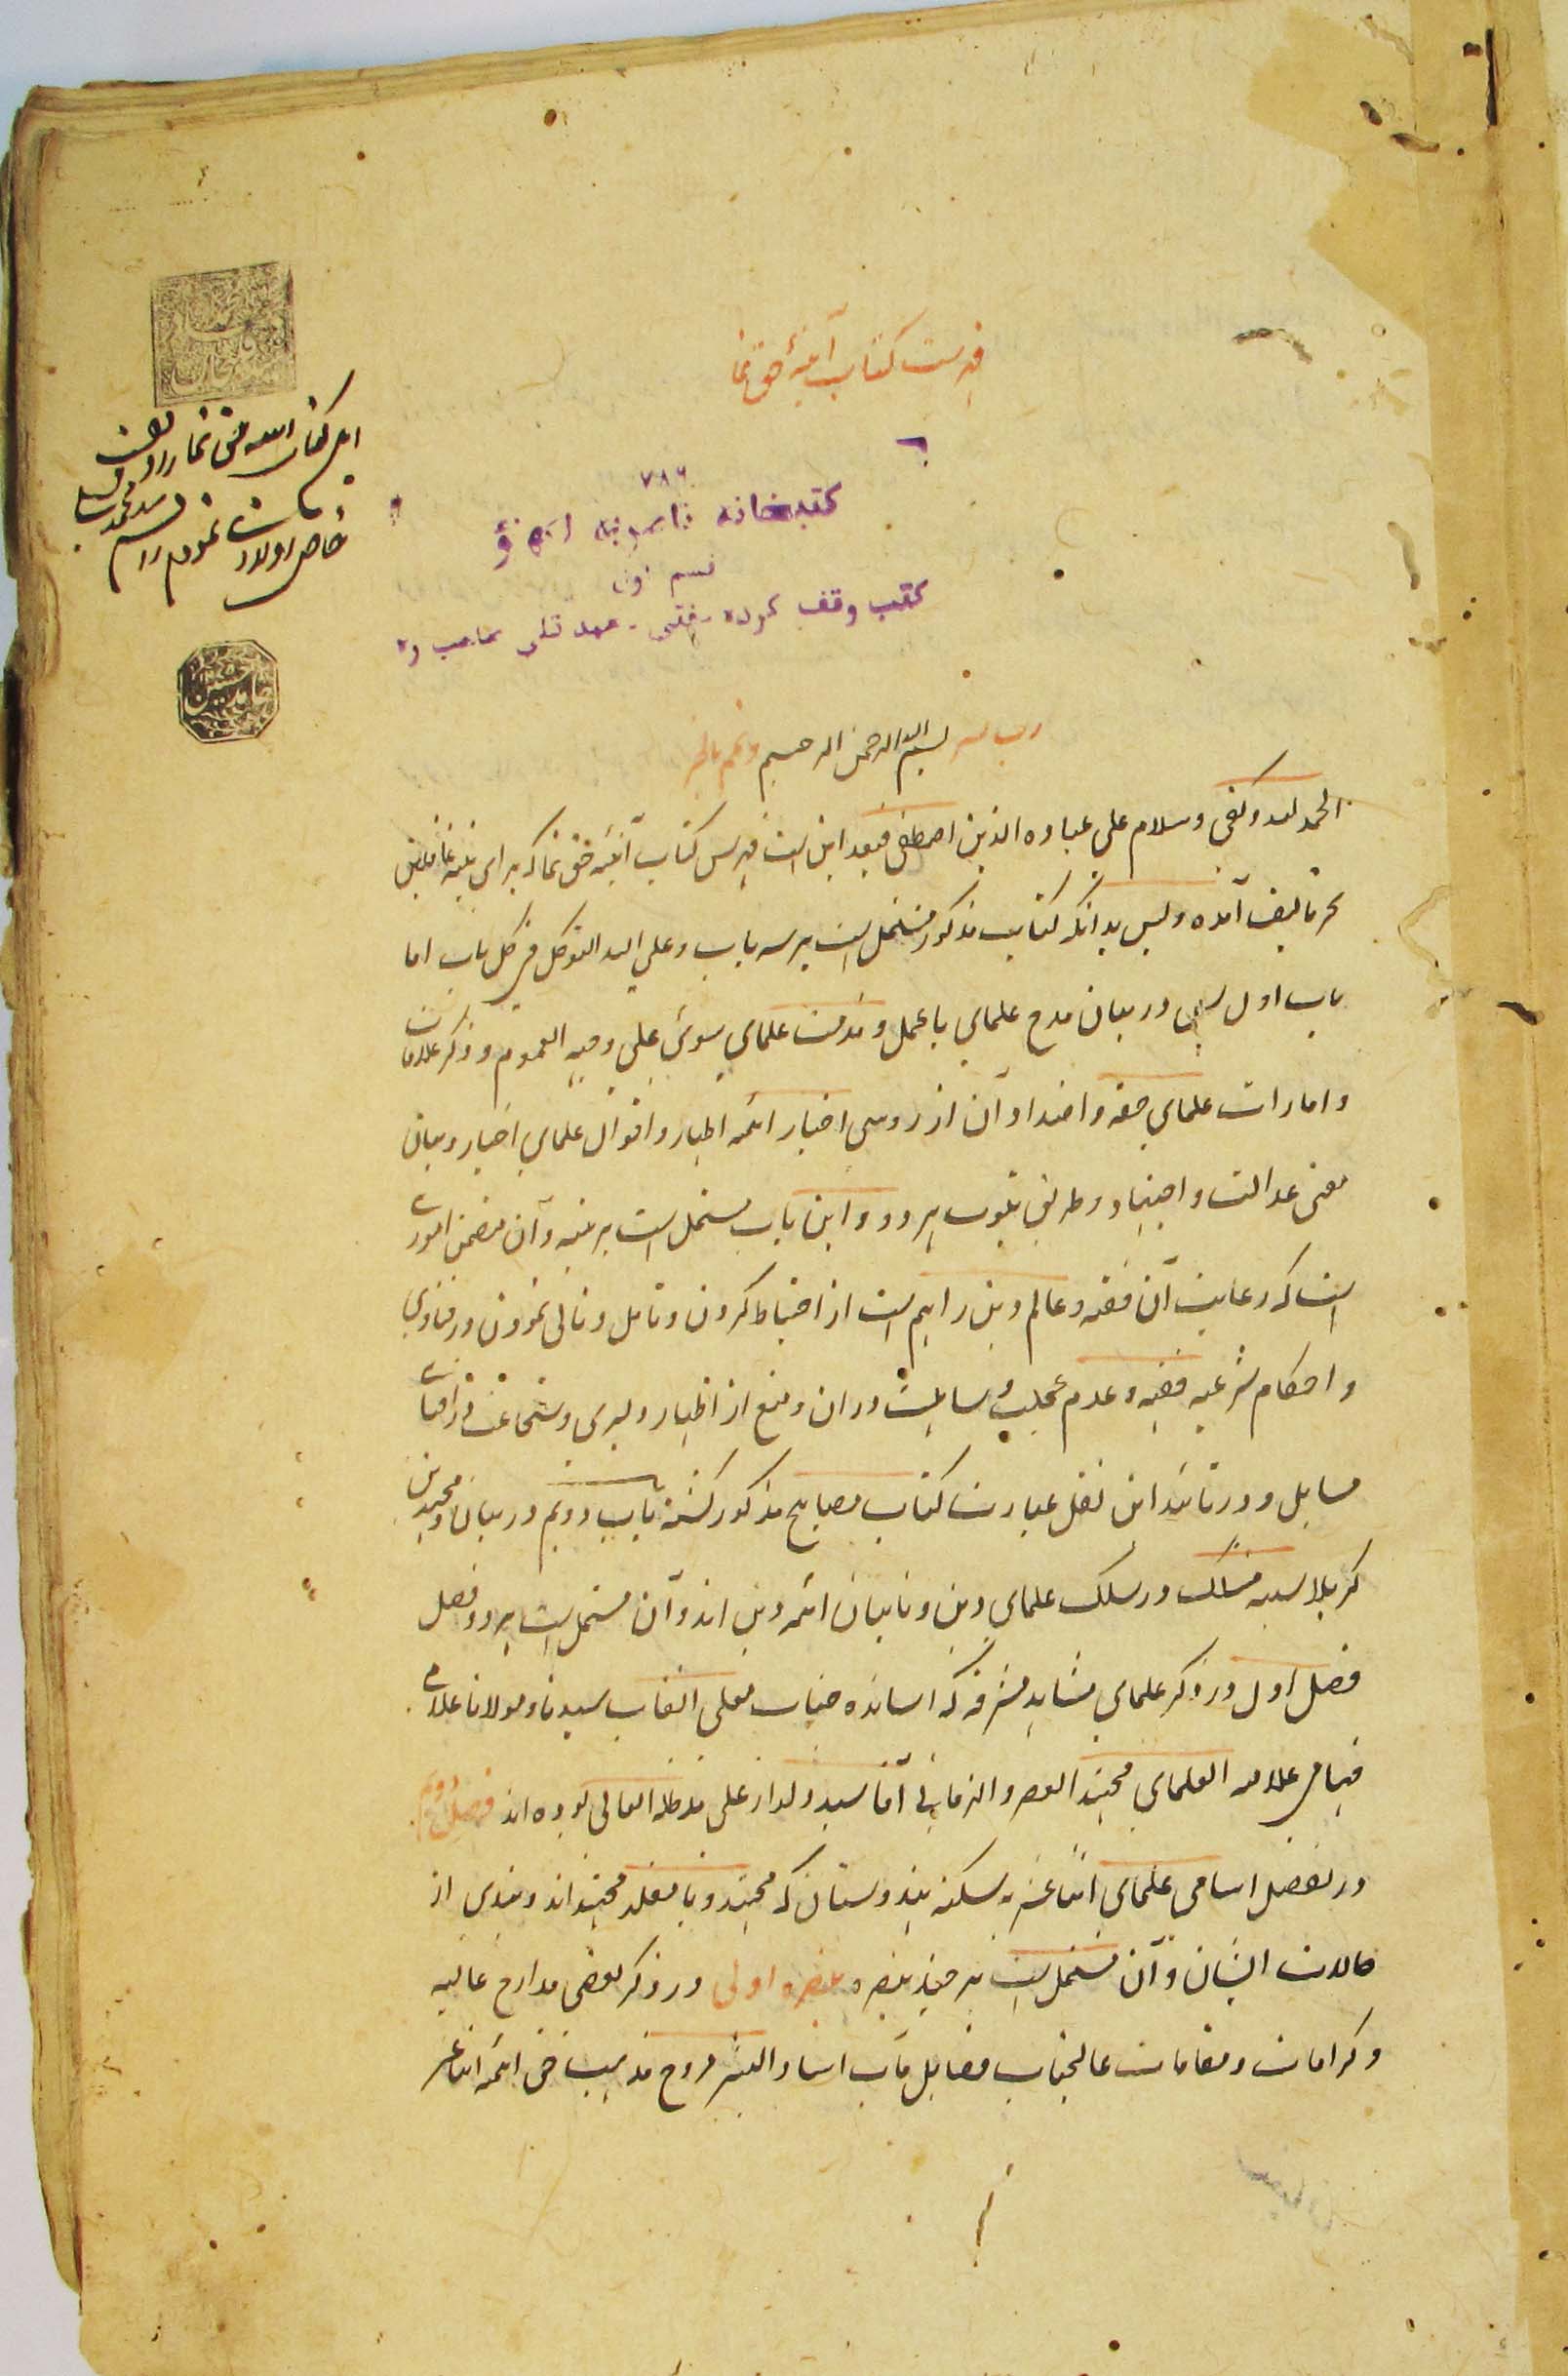 فهرست کتاب آئینهٔ حق نما
۷۸۶
کتبخانه ناصریه لکهنؤ
قسم اول
کتب وقف کرده مفتی محمد قلی صاحب رح
این کتاب آئینه حق نما را وقف
خاص اولاد نمودم
حامد حسین
رب یسر بسم الله الرحمن الرحیم وتمم بالخیر
الحمد لله وکفی وسلام علی عباده الذین اصطفی فبعد این است فهرس کتاب آئینه حق نما که برای تنبیه غافلین
بحر تالیف آمده و پس بدانکه کتاب مذکور مشتمل است بر سه باب وعلی الله التوکل فی کل باب اما
باب اول پس در بیان مدح علمای باعمل و مذمت علمای سوئ علی وجه العموم و ذکر علامات
و امارات علمای حقه و اضداد آن از روی اخبار ائمه اطهار و اقوال علمای اخیار و بیان
معنی عدالت و اجتهاد و طریق ثبوت هر دو و این باب مشتمل است بر تنبیه و آن متضمن امورے
است که رعایت آن فقیه و عالم دین را اهم است از احتیاط کردن و تامل و تانی نمودن در فتاوی
و احکام شرعیه فقهیه و عدم عجلت و مساهلت دران و منع از اظهار دلیری و شجاعت در افتای
مسایل و در تائید این نقل عبارت کتاب مصابیح مذکور گشته باب دویم در بیان مجتهدین
کربلا سیه منسلک در سلک علمای دین و نایبان ائمه دین اند و آن مشتمل است بر دو فصل
فصل اول در ذکر علمای مشاهد مشرفه که اساتذه جناب معلی القاب سیدنا و مولانا علامی
فهامی علامه العلمای مجتهد العصر والزمانی آقا سید دلدار علی مد ظله العالی بوده اند فصل دویم
در تفصیل اسامی علمای اثنا عشریه سکنه هندوستان که مجتهد و یا مقلد مجتهد اند و نبذی از
حالات ایشان و آن مشتمل است بر چند تبصره تبصره اولی در ذکر بعضی مدارج عالیه
و کرامات و مقامات عالیجناب فضایل مآب استاد البشر مروج مذهب حق ائمه اثنا عشر